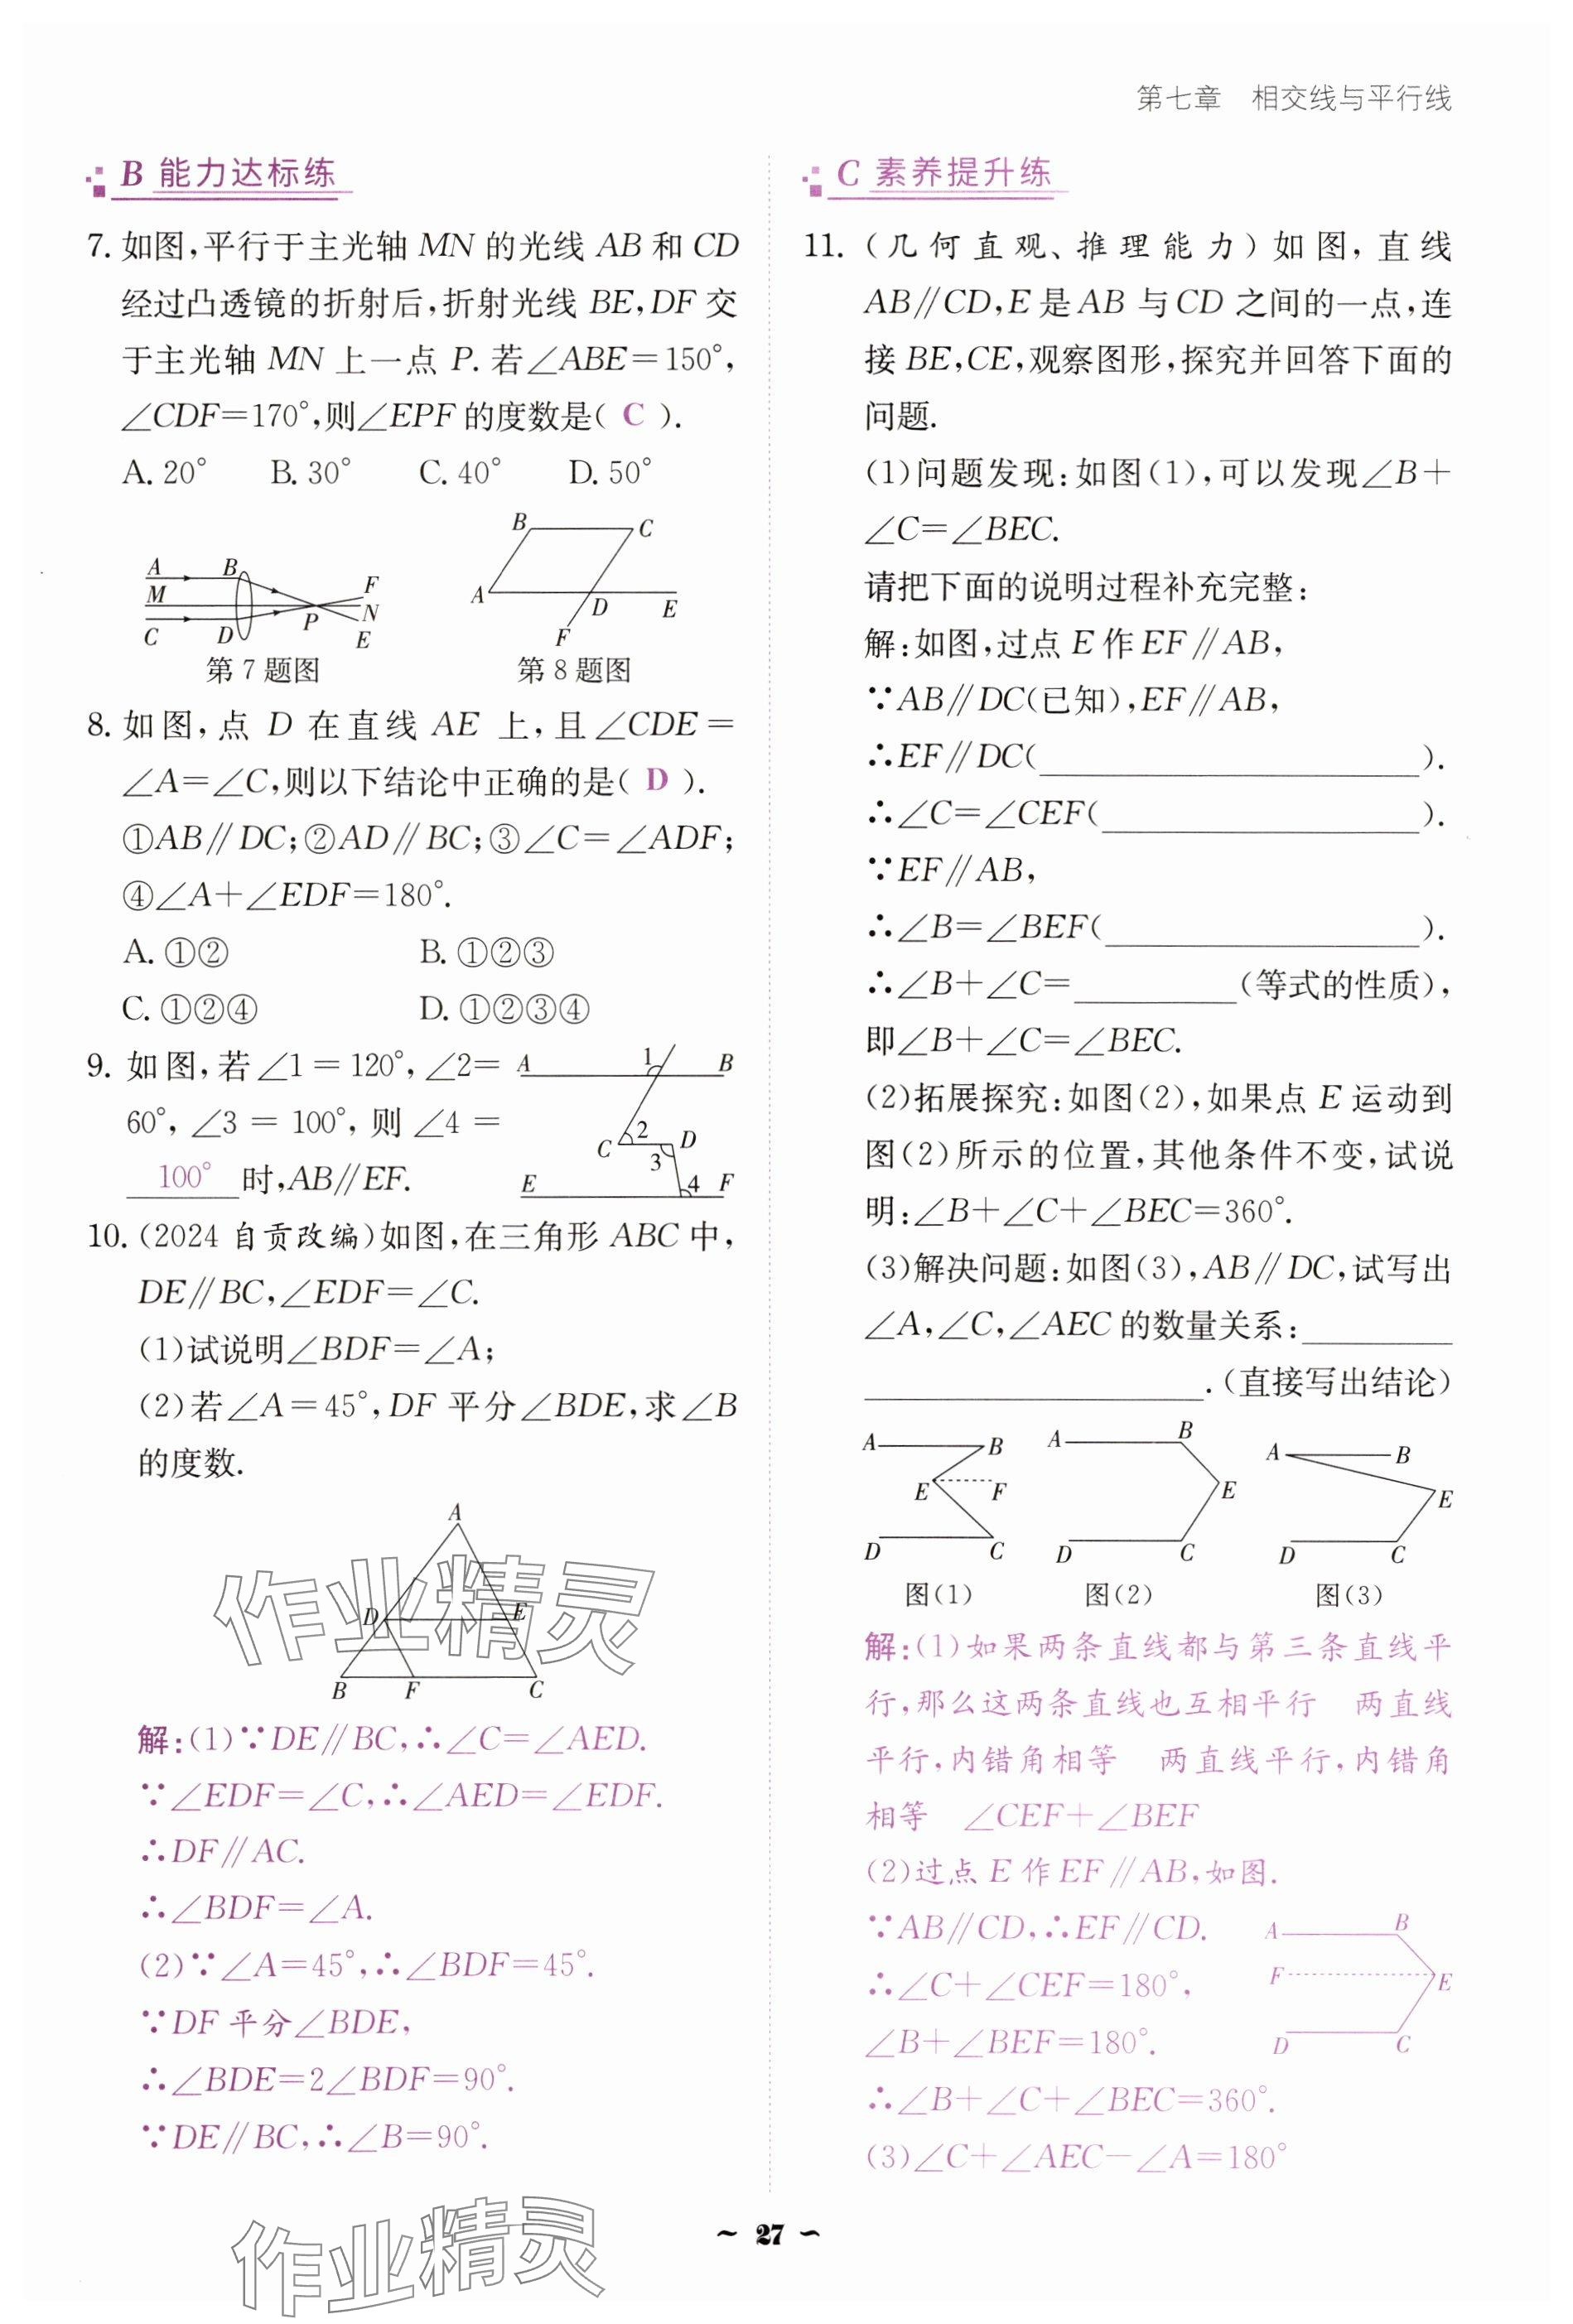 第七章 相交线与平行线
B 能力达标练
7. 如图,平行于主光轴 MN 的光线 AB 和 CD
经过凸透镜的折射后,折射光线 BE,DF 交
于主光轴 MN 上一点 P. 若∠ABE=150°,
∠CDF=170°,则∠EPF 的度数是( C ).
A. 20° B. 30° C. 40° D. 50°
A B F
M N
C D P E
第 7 题图
B C
A D E
F
第 8 题图
8. 如图,点 D 在直线 AE 上,且∠CDE=
∠A=∠C,则以下结论中正确的是( D ).
①AB∥DC;②AD∥BC;③∠C=∠ADF;
④∠A+∠EDF=180°.
A. ①② B. ①②③
C. ①②④ D. ①②③④
9. 如图,若∠1=120°,∠2=
60°,∠3=100°,则∠4=
100° 时,AB∥EF.
A 1 B
C 2 D
3
E 4 F
10. (2024 自贡改编)如图,在三角形 ABC 中,
DE∥BC,∠EDF=∠C.
(1)试说明∠BDF=∠A;
(2)若∠A=45°,DF 平分∠BDE,求∠B
的度数.
A
D E
B F C
解:(1)∵DE∥BC,∴∠C=∠AED.
∵∠EDF=∠C,∴∠AED=∠EDF.
∴DF∥AC.
∴∠BDF=∠A.
(2)∵∠A=45°,∴∠BDF=45°.
∵DF 平分∠BDE,
∴∠BDE=2∠BDF=90°.
∵DE∥BC,∴∠B=90°.
C 素养提升练
11. (几何直观、推理能力)如图,直线
AB∥CD,E 是 AB 与 CD 之间的一点,连
接 BE,CE,观察图形,探究并回答下面的
问题.
(1)问题发现:如图(1),可以发现∠B+
∠C=∠BEC.
请把下面的说明过程补充完整:
解:如图,过点 E 作 EF∥AB,
∵AB∥DC(已知),EF∥AB,
∴EF∥DC(__________).
∴∠C=∠CEF(__________).
∵EF∥AB,
∴∠B=∠BEF(__________).
∴∠B+∠C=__________(等式的性质),
即∠B+∠C=∠BEC.
(2)拓展探究:如图(2),如果点 E 运动到
图(2)所示的位置,其他条件不变,试说
明:∠B+∠C+∠BEC=360°.
(3)解决问题:如图(3),AB∥DC,试写出
∠A,∠C,∠AEC 的数量关系:__________
__________.(直接写出结论)
A B
E F
D C
图(1)
A B
E
D C
图(2)
A B
E
D C
图(3)
解:(1)如果两条直线都与第三条直线平
行,那么这两条直线也互相平行 两直线
平行,内错角相等 两直线平行,内错角
相等 ∠CEF+∠BEF
(2)过点 E 作 EF∥AB,如图.
∵AB∥CD,∴EF∥CD.
∴∠C+∠CEF=180°,
∠B+∠BEF=180°.
∴∠B+∠C+∠BEC=360°.
A B
F E
D C
(3)∠C+∠AEC−∠A=180°
作业精灵
作业精灵
~ 27 ~